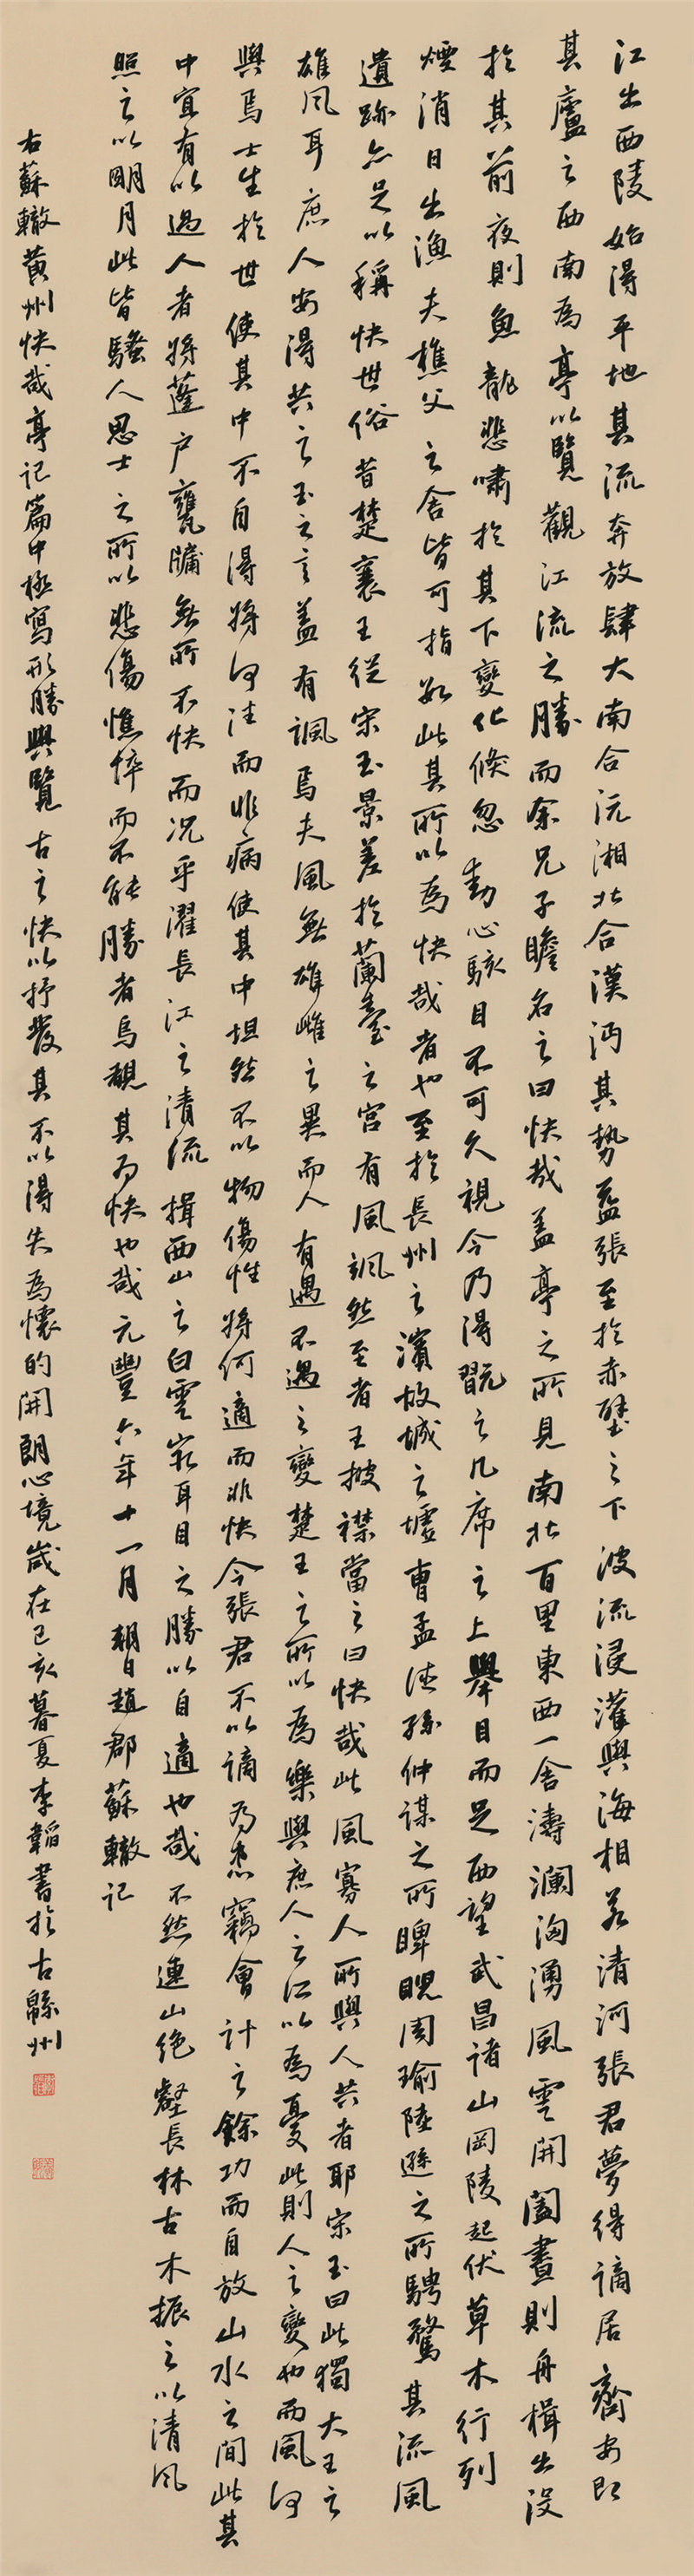 江出西陵始得平地其流奔放肆大南合沅湘北合漢沔其勢益張至於赤壁之下波流浸灌與海相若清河張君夢得謫居齊安即
其廬之西南為亭以覽觀江流之勝而余兄子瞻名之曰快哉蓋亭之所見南北百里東西一舍濤瀾洶湧風雲開闔晝則舟楫出沒
於其前夜則魚龍悲嘯於其下變化倏忽動心駭目不可久視今乃得翫之几席之上舉目而足西望武昌諸山岡陵起伏草木行列
煙消日出漁夫樵父之舍皆可指數此其所以為快哉者也至於長州之濱故城之墟曹孟德孫仲謀之所睥睨周瑜陸遜之所騁騖其流風
遺跡亦足以稱快世俗昔楚襄王從宋玉景差於蘭臺之宮有風颯然至者王披襟當之曰快哉此風寡人所與人共者耶宋玉曰此獨大王之
雄風耳庶人安得共之玉之言蓋有諷焉夫風無雄雌之異而人有遇不遇之變楚王之所以為樂與庶人之所以為憂此則人之變也而風何
與焉士生於世使其中不自得將何往而非病使其中坦然不以物傷性將何適而非快今張君不以謫為患竊會計之餘功而自放山水之間此其
中宜有以過人者將蓬戶甕牖無所不快而況乎濯長江之清流揖西山之白雲窮耳目之勝以自適也哉不然連山絕壑長林古木振之以清風
照之以明月此皆騷人思士之所以悲傷憔悴而不能勝者烏覩其為快也哉元豐六年十一月朔日趙郡蘇轍記
右蘇轍黃州快哉亭記篇中極寫形勝與覽古之快以抒發其不以得失為懷的開朗心境歲在己亥暮夏李韜書於古綿州